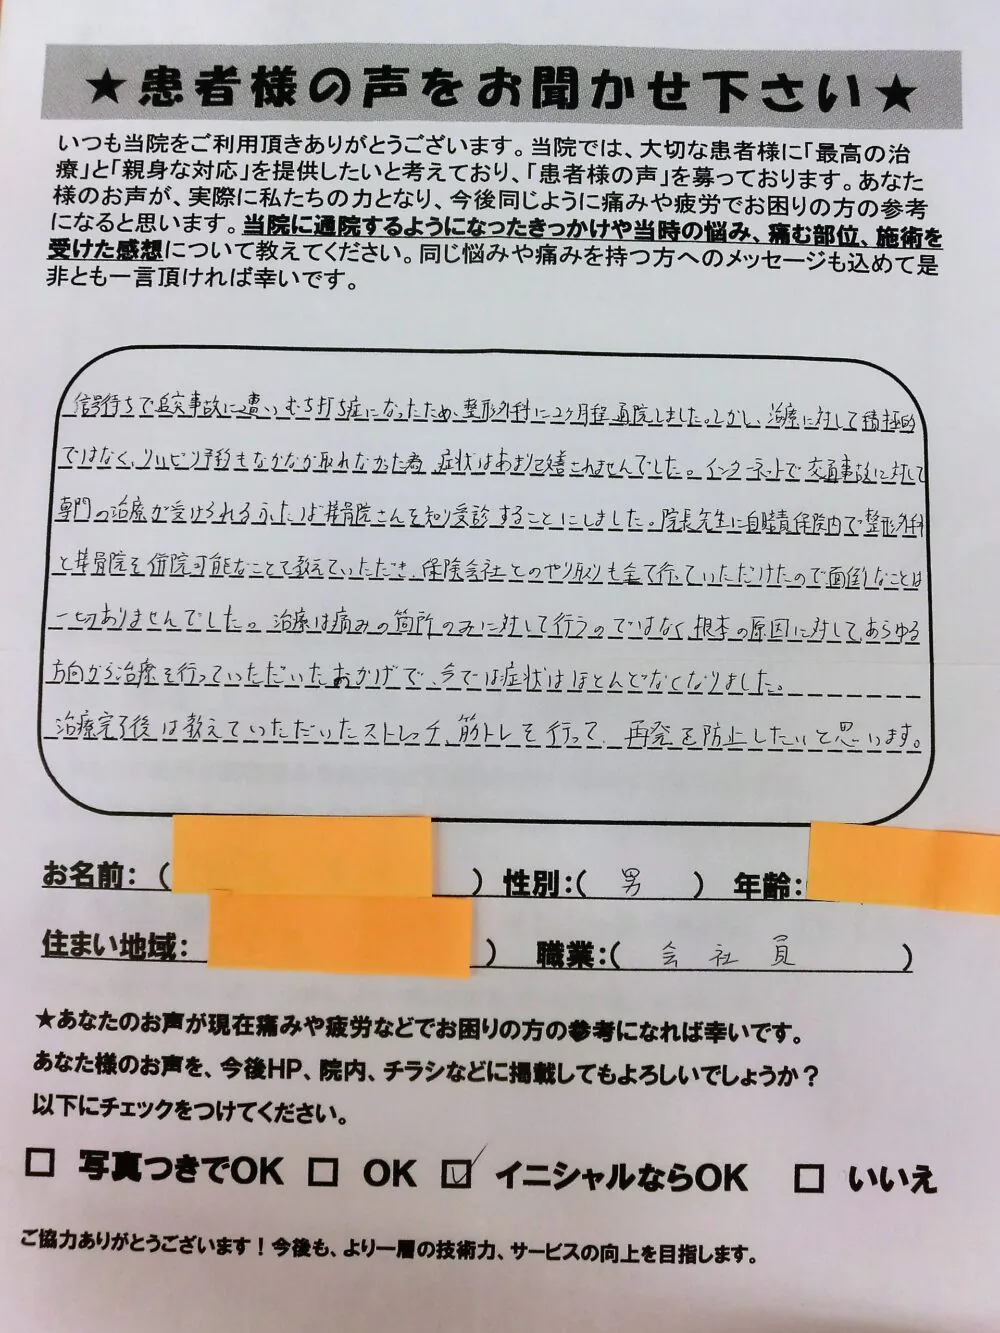 ★患者様の声をお聞かせ下さい★
いつも当院をご利用頂きありがとうございます。当院では、大切な患者様に「最高の治
療」と「親身な対応」を提供したいと考えており、「患者様の声」を募っております。あなた
様のお声が、実際に私たちの力となり、今後同じように痛みや疲労でお困りの方の参考
になると思います。当院に通院するようになったきっかけや当時の悩み、痛む部位、施術を
受けた感想について教えてください。同じ悩みや痛みを持つ方へのメッセージも込めて是
非とも一言頂ければ幸いです。
信号待ちで追突事故に遭いむち打ち症になったため、整形外科に2ヶ月程通院しました。しかし、治療に対して積極的
ではなく、リハビリ予約もなかなか取れなかった為、症状はあまり改善されませんでした。インターネットで交通事故に対して
専門の治療が受けられるふたば接骨院さんを知り受診することにしました。院長先生に自賠責保険内で整形外科
と接骨院を併院可能なことを教えていただき、保険会社とのやり取りも全て行っていただけたので面倒なことは
一切ありませんでした。治療は痛みの箇所のみに対して行うのではなく、根本の原因に対して、あらゆる
方向から治療を行っていただいたおかげで、今では症状はほとんどなくなりました。
治療完了後は教えていただいたストレッチ、筋トレを行って、再発を防止したいと思います。
お名前：（ ） 性別：（ 男 ） 年齢：
住まい地域： ） 職業：（ 会社員 ）
★あなたのお声が現在痛みや疲労などでお困りの方の参考になれば幸いです。
あなた様のお声を、今後HP、院内、チラシなどに掲載してもよろしいでしょうか？
以下にチェックをつけてください。
□ 写真つきでOK □ OK ☑ イニシャルならOK □ いいえ
ご協力ありがとうございます！今後も、より一層の技術力、サービスの向上を目指します。